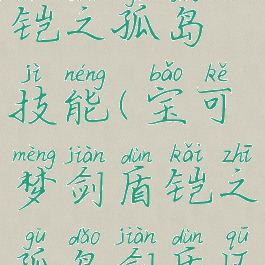 铠之孤岛
jì néng bǎo kě
技能(宝可
mèng jiàn dùn kǎi zhī
梦剑盾铠之
gū dǎo jiàn dùn
孤岛剑盾